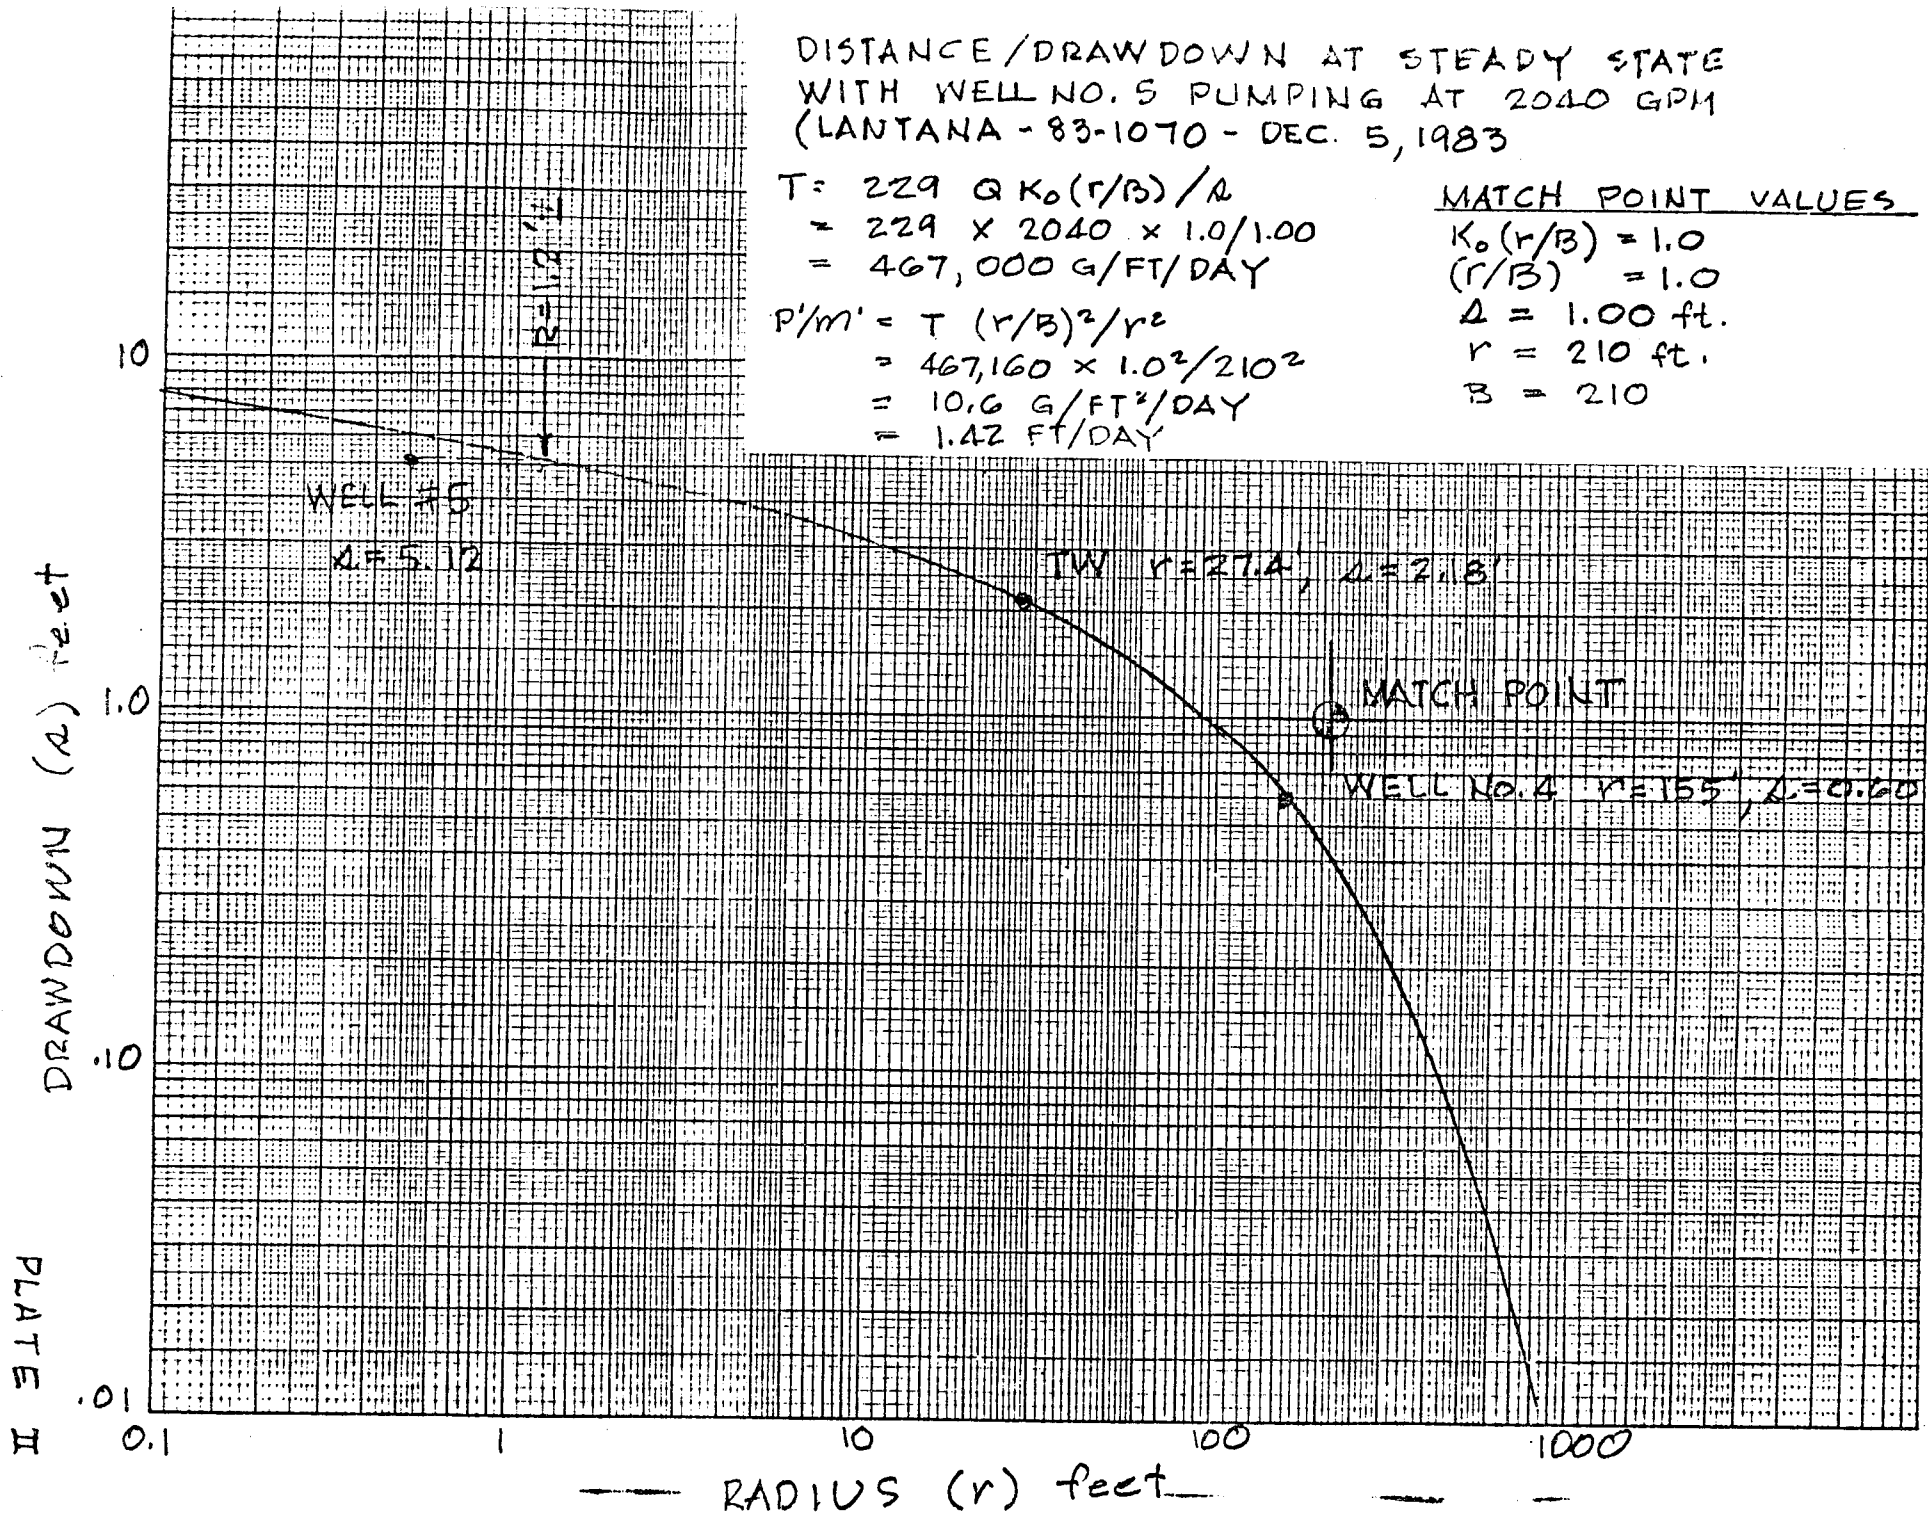 DISTANCE/DRAWDOWN AT STEADY STATE
WITH WELL NO. 5 PUMPING AT 2040 GPM
(LANTANA - 83-1070 - DEC. 5, 1983
T= 229 Q K₀(r/B)/s
= 229 × 2040 × 1.0/1.00
= 467,000 G/FT/DAY
P'/m' = T (r/B)²/r²
= 467,160 × 1.0²/210²
= 10.6 G/FT²/DAY
= 1.42 FT/DAY
MATCH POINT VALUES
K₀(r/B) = 1.0
(r/B) = 1.0
s = 1.00 ft.
r = 210 ft.
B = 210
R=1.2'±
WELL #5
s=5.12
TW r=27.4', s=2.18'
MATCH POINT
WELL NO.4 r=155', s=0.60
10
1.0
.10
.01
DRAWDOWN (s) feet
0.1
1
10
100
1000
RADIUS (r) feet
PLATE II